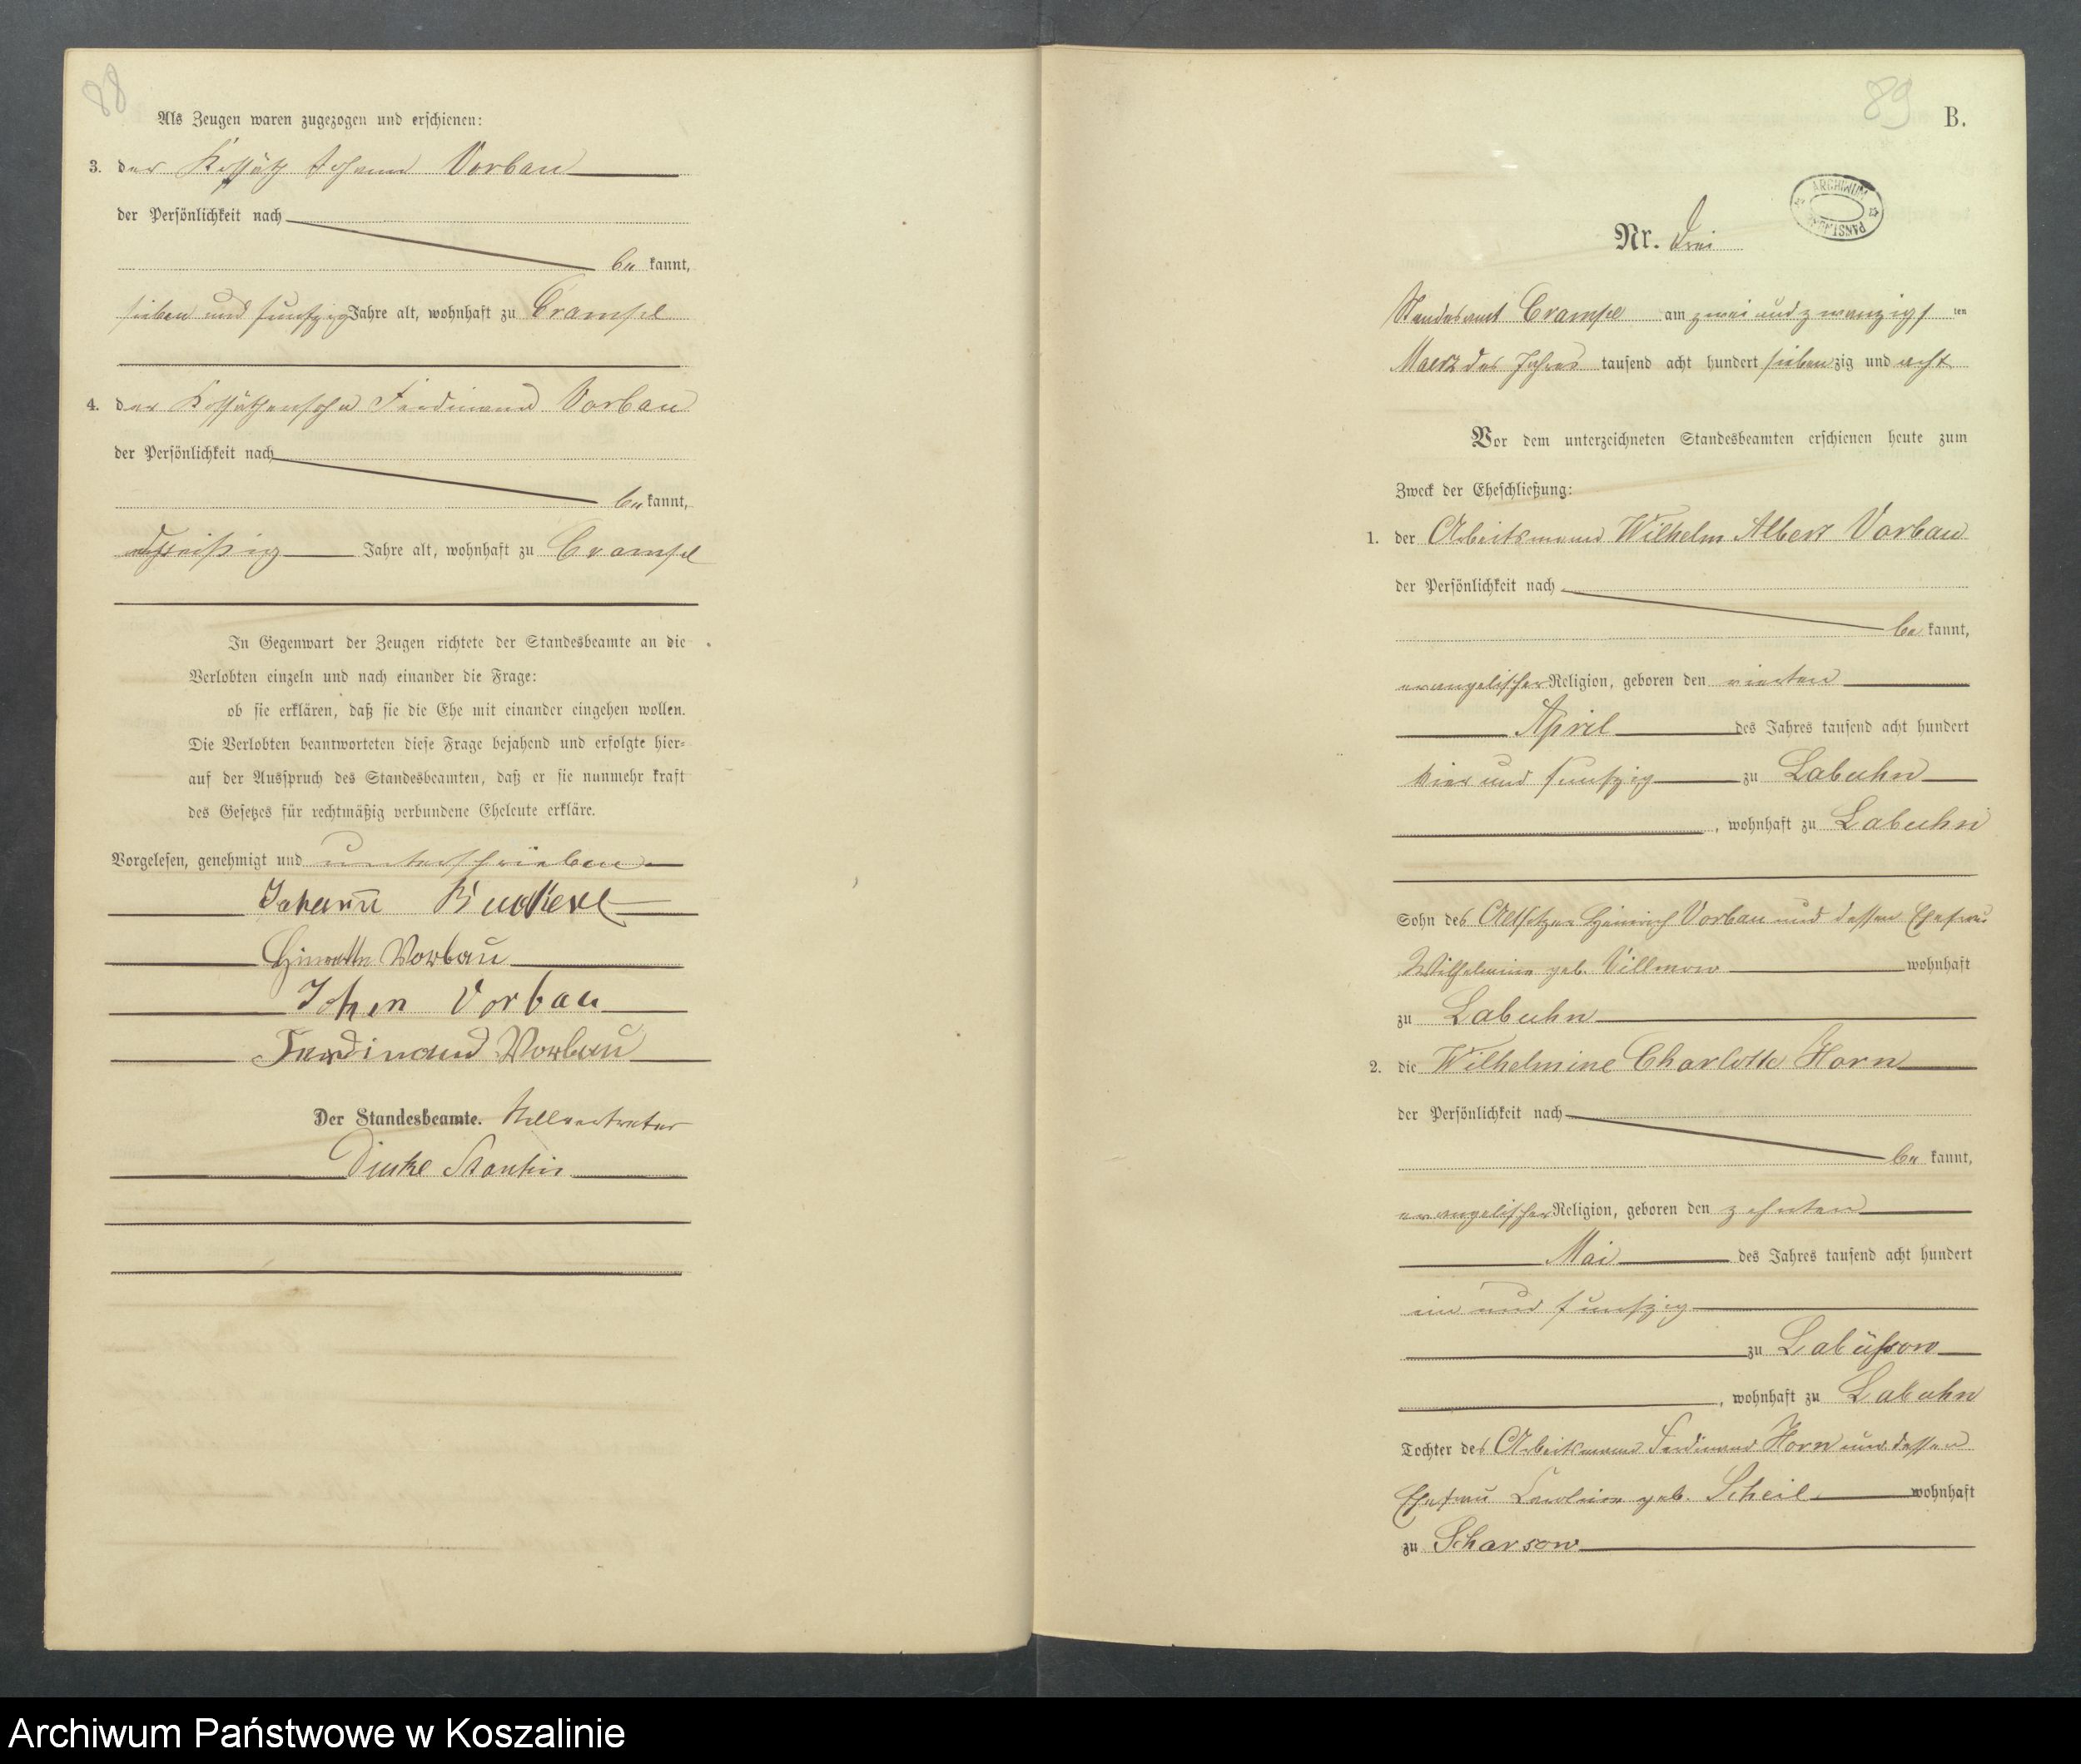 88
Als Zeugen waren zugezogen und erschienen:
3. der Kossäth Johann Vorbau
der Persönlichkeit nach
be kannt,
sieben und funfzig Jahre alt, wohnhaft zu Crampe
4. der Kossäthensohn Ferdinand Vorbau
der Persönlichkeit nach
be kannt,
dreißig Jahre alt, wohnhaft zu Crampe
In Gegenwart der Zeugen richtete der Standesbeamte an die
Verlobten einzeln und nach einander die Frage:
ob sie erklären, daß sie die Ehe mit einander eingehen wollen.
Die Verlobten beantworteten diese Frage bejahend und erfolgte hier-
auf der Ausspruch des Standesbeamten, daß er sie nunmehr kraft
des Gesetzes für rechtmäßig verbundene Eheleute erkläre.
Vorgelesen, genehmigt und unterschrieben
Johann
Vorbau
Johen Vorbau
Ferdinand Vorbau
Der Standesbeamte. Stellvertreter
89
B.
ARCHIWUM PAŃSTWOWE
Nr. Drei
Standesamt Crampe am zwei und zwanzigsten
Maerz des Jahres tausend acht hundert siebenzig und acht
Vor dem unterzeichneten Standesbeamten erschienen heute zum
Zweck der Eheschließung:
1. der Arbeitsmann Wilhelm Albert Vorbau
der Persönlichkeit nach
be kannt,
evangelischer Religion, geboren den vierten
April des Jahres tausend acht hundert
vier und funfzig zu Labuhn
, wohnhaft zu Labuhn
Sohn des Altsitzer Heinrich Vorbau und dessen Ehefrau
Wilhelmine geb. Villmow wohnhaft
zu Labuhn
2. die Wilhelmine Charlotte Horn
der Persönlichkeit nach
be kannt,
evangelischer Religion, geboren den zehnten
Mai des Jahres tausend acht hundert
ein und funfzig
zu Labüssow
, wohnhaft zu Labuhn
Tochter des Arbeitsmann Ferdinand Horn und dessen
Ehefrau Caroline geb. Scheil wohnhaft
zu Scharsow
Archiwum Państwowe w Koszalinie